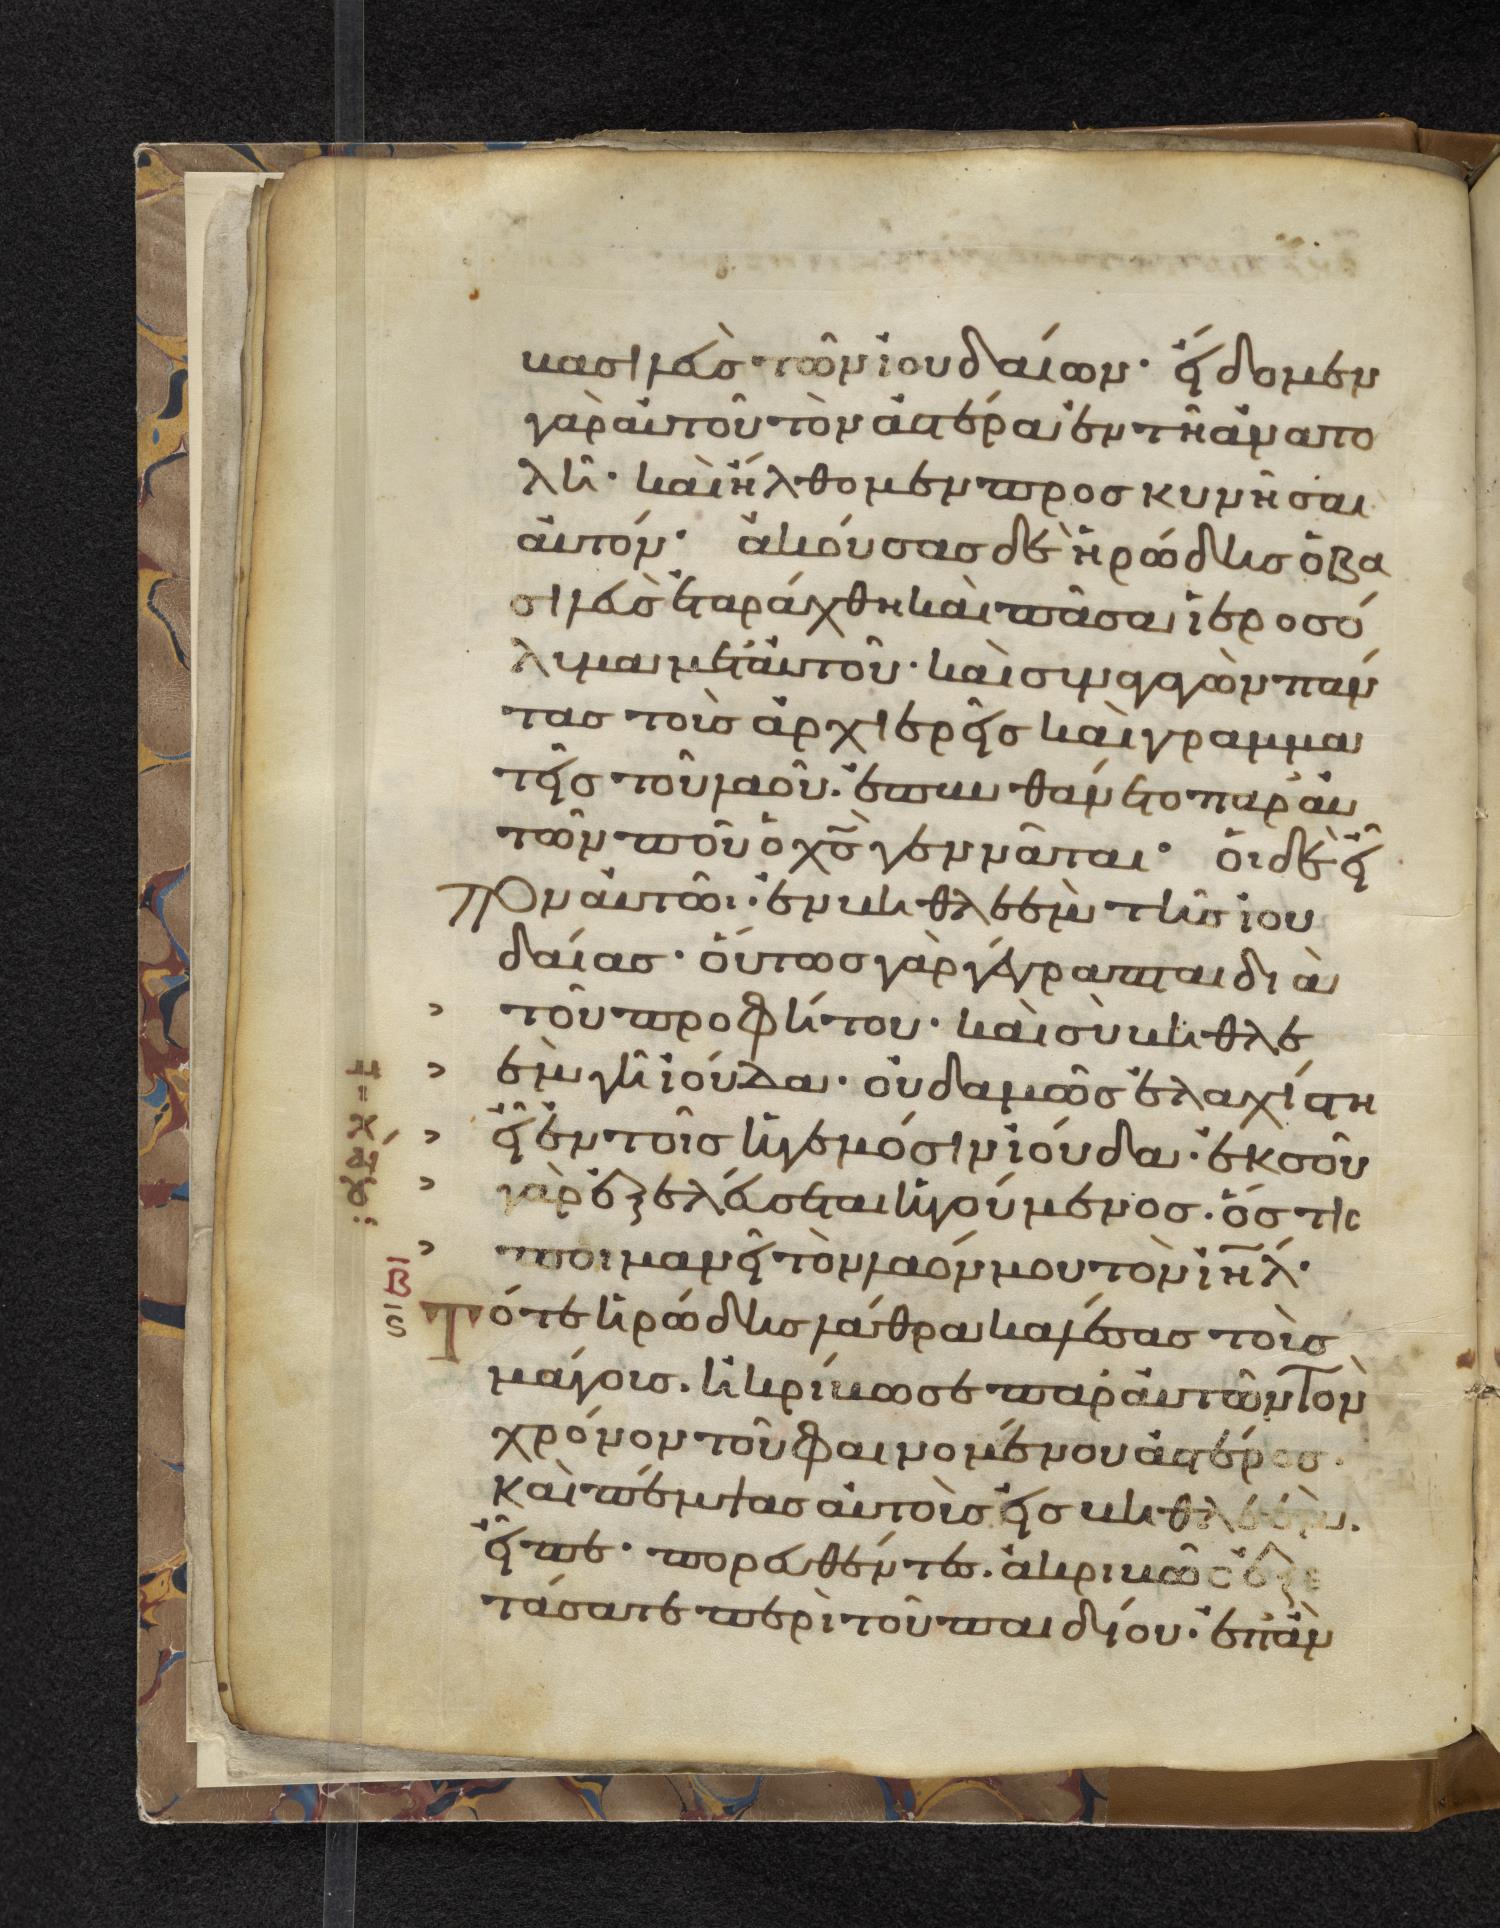 βασιλεὺς τῶν ἰουδαίων· εἴδομεν
γὰρ αὐτοῦ τὸν ἀστέρα ἐν τῆ ἀνατο
λῆ· καὶ ἤλθομεν προσκυνῆσαι
αὐτόν· ἀκούσας δὲ ἡρώδης ὁ βα
σιλεὺς ἐταράχθη καὶ πᾶσα ἱεροσό
λυμα μετ' αὐτοῦ· καὶ συναγαγὼν πάν
τας τοὺς ἀρχιερεῖς καὶ γραμμα
τεῖς τοῦ λαοῦ. ἐπυνθάνετο παρ' αὐ
τῶν ποῦ ὁ χς γεννᾶται· οἱ δὲ εἶ
πον αὐτῶ· ἐν βηθλεὲμ τῆς ἰου
δαίας· οὕτως γὰρ γέγραπται διὰ
τοῦ προφήτου· καὶ σὺ βηθλε
ὲμ γῆ ἰούδα· οὐδαμῶς ἐλαχίστη
εἶ ἐν τοῖς ἡγεμόσιν ἰούδα· ἐκ σοῦ
γὰρ ἐξελεύσεται ἡγούμενος. ὅστις
ποιμανεῖ τὸν λαόν μου τὸν ιηλ·
μιχαίου
Β
ς
Τότε ἡρώδης λάθρα καλέσας τοὺς
μάγους. ἠκρίβωσε παρ' αὐτῶν τὸν
χρόνον τοῦ φαινομένου ἀστέρος.
καὶ πέμψας αὐτοὺς εἰς βηθλεὲμ.
εἶπε· πορευθέντες. ἀκριβῶς ἐξε
τάσατε περὶ τοῦ παιδίου· ἐπὰν